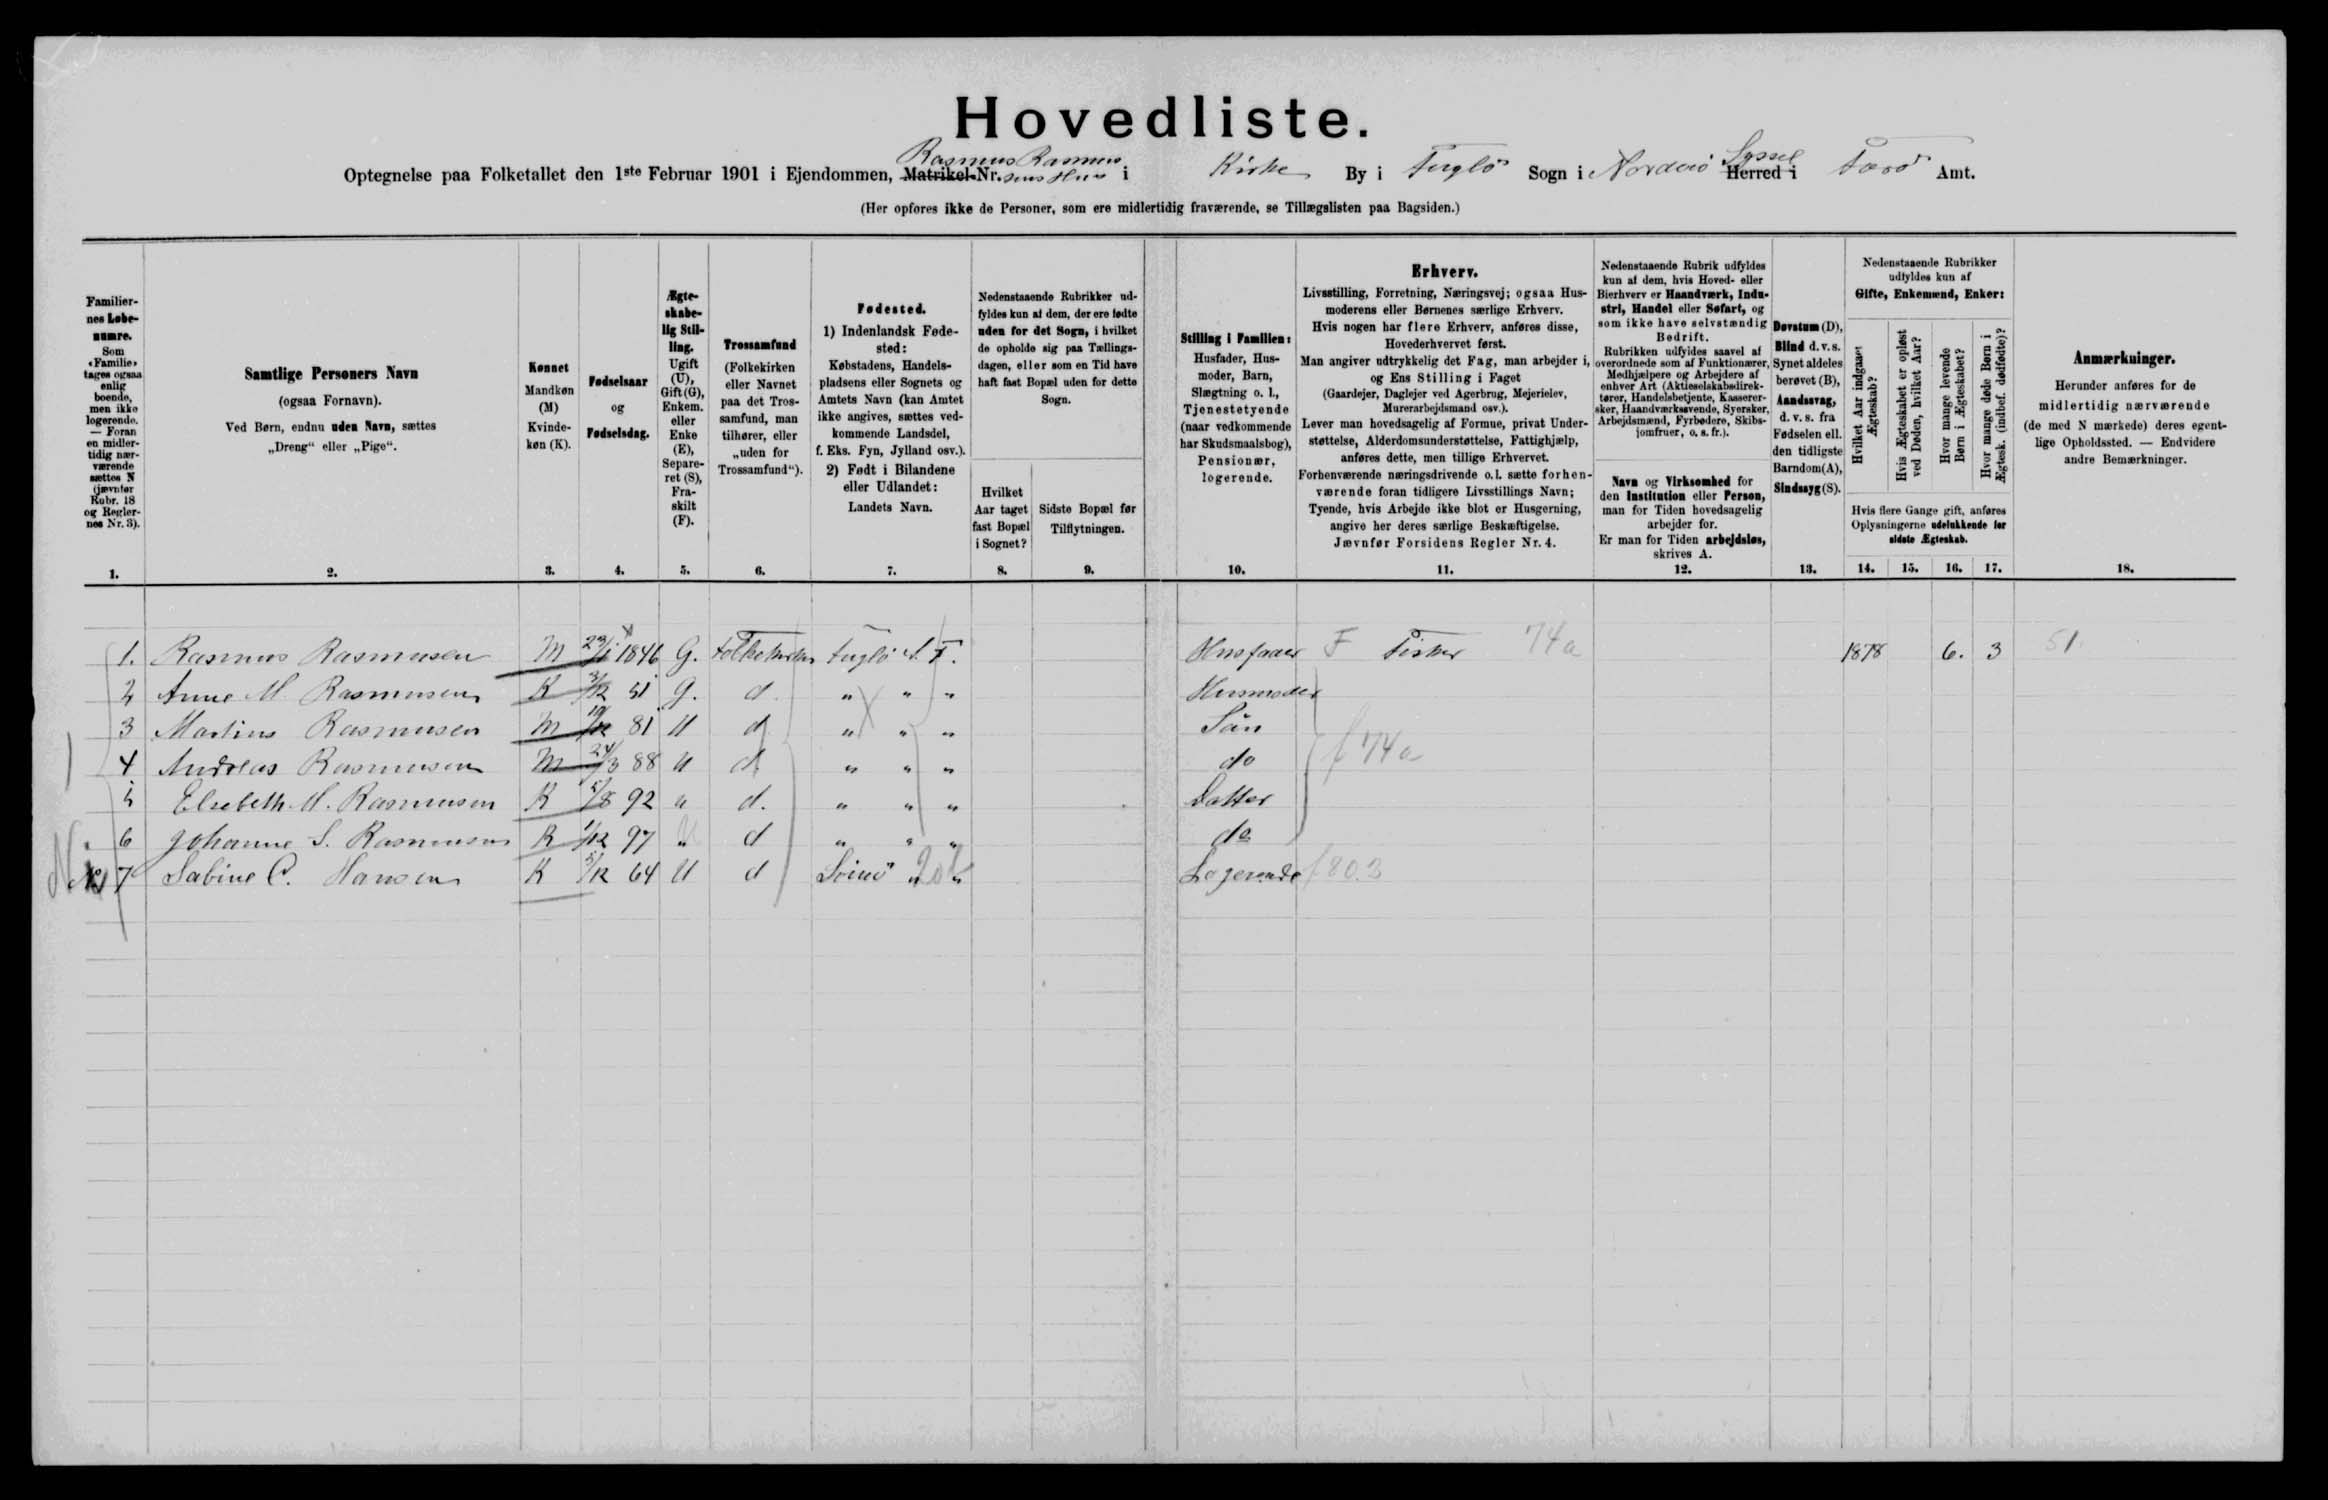 Hovedliste.
Optegnelse paa Folketallet den 1ste Februar 1901 i Ejendommen, Matrikel-Nr. Rasmus Rasmussens Hus i Kirke By i Fuglö Sogn i Norderö Syssel Herred i Færö Amt.
(Her opføres ikke de Personer, som ere midlertidig fraværende, se Tillægslisten paa Bagsiden.)
Familiernes Løbenumre.
Som «Familie» tages ogsaa enlig boende, men ikke logerende. — Foran en midlertidig nærværende sættes N (jævnfør Rubr. 18 og Reglernes Nr. 3).
1.
Samtlige Personers Navn
(ogsaa Fornavn).
Ved Børn, endnu uden Navn, sættes
„Dreng“ eller „Pige“.
2.
Kønnet
Mandkøn (M)
Kvindekøn (K).
3.
Fødselsaar
og
Fødselsdag.
4.
Ægteskabelig Stilling.
Ugift (U), Gift (G), Enkem. eller Enke (E), Separeret (S), Fraskilt (F).
5.
Trossamfund
(Folkekirken eller Navnet paa det Trossamfund, man tilhører, eller „uden for Trossamfund“).
6.
Fødested.
1) Indenlandsk Fødested:
Købstadens, Handelspladsens eller Sognets og Amtets Navn (kan Amtet ikke angives, sættes vedkommende Landsdel, f. Eks. Fyn, Jylland osv.).
2) Født i Bilandene eller Udlandet:
Landets Navn.
7.
Nedenstaaende Rubrikker udfyldes kun af dem, der ere fødte uden for det Sogn, i hvilket de opholde sig paa Tællingsdagen, eller som en Tid have haft fast Bopæl uden for dette Sogn.
Hvilket Aar taget fast Bopæl i Sognet?
8.
Sidste Bopæl før Tilflytningen.
9.
Stilling i Familien:
Husfader, Husmoder, Barn, Slægtning o. l., Tjenestetyende (naar vedkommende har Skudsmaalsbog), Pensionær, logerende.
10.
Erhverv.
Livsstilling, Forretning, Næringsvej; ogsaa Husmoderens eller Børnenes særlige Erhverv.
Hvis nogen har flere Erhverv, anføres disse, Hovederhvervet først.
Man angiver udtrykkelig det Fag, man arbejder i, og Ens Stilling i Faget
(Gaardejer, Daglejer ved Agerbrug, Mejerielev, Murerarbejdsmand osv.).
Lever man hovedsagelig af Formue, privat Understøttelse, Alderdomsunderstøttelse, Fattighjælp, anføres dette, men tillige Erhvervet.
Forhenværende næringsdrivende o. l. sætte forhenværende foran tidligere Livsstillings Navn;
Tyende, hvis Arbejde ikke blot er Husgerning, angive her deres særlige Beskæftigelse.
Jævnfør Forsidens Regler Nr. 4.
11.
Nedenstaaende Rubrik udfyldes kun af dem, hvis Hoved- eller Bierhverv er Haandværk, Industri, Handel eller Søfart, og som ikke have selvstændig Bedrift.
Rubrikken udfyldes saavel af overordnede som af Funktionærer, Medhjælpere og Arbejdere af enhver Art (Aktieselskabsdirektører, Handelsbetjente, Kasserersker, Haandværkssvende, Syersker, Arbejdsmænd, Fyrbødere, Skibsjomfruer, o. s. fr.).
Navn og Virksomhed for den Institution eller Person, man for Tiden hovedsagelig arbejder for.
Er man for Tiden arbejdsløs, skrives A.
12.
Døvstum (D), Blind d. v. s. Synet aldeles berøvet (B), Aandssvag, d. v. s. fra Fødselen ell. den tidligste Barndom (A), Sindssyg (S).
13.
Nedenstaaende Rubrikker udfyldes kun af
Gifte, Enkemænd, Enker:
Hvilket Aar indgaaet Ægteskab?
Hvis Ægteskabet er opløst ved Døden, hvilket Aar?
Hvor mange levende Børn i Ægteskabet?
Hvor mange døde Børn i Ægtesk. (indbef. dødfødte)?
Hvis flere Gange gift, anføres Oplysningerne udelukkende for sidste Ægteskab.
14. 15. 16. 17.
Anmærkninger.
Herunder anføres for de midlertidig nærværende (de med N mærkede) deres egentlige Opholdssted. — Endvidere andre Bemærkninger.
18.
1. Rasmus Rasmussen M 23/1 1846 G. Folkekirken Fuglö A. F. Husfader F Fisker 74a 1878 6. 3 51
2 Anne M. Rasmussen K 3/12 51 G. d " " " Husmoder
3 Martins Rasmussen M 19/12 81 U d " " " Sön
4 Andreas Rasmussen M 24/3 88 U d " " " do f 74a
5 Elsebeth M. Rasmussen K 5/8 92 " d. " " " Datter
6 Johanne S. Rasmussen K 1/12 97 " d " " " do
N 7 Sabine C. Hansen K 5/12 64 U d Svinö " " Logerende f 80.3